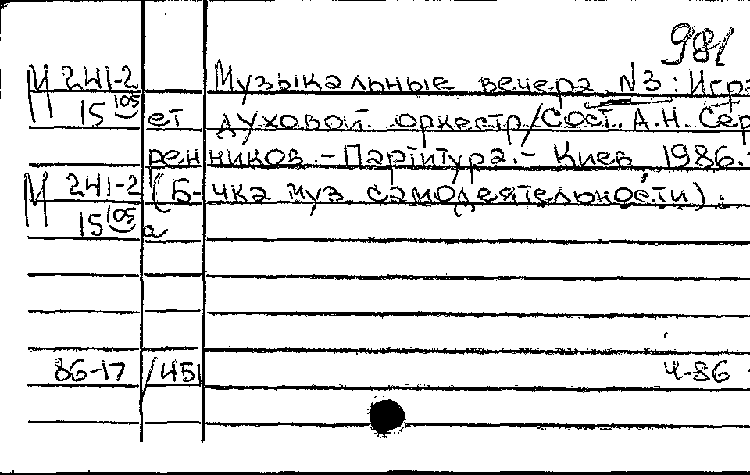 981
М 241-2 Музыкальные вечера N3: Игра
15 105 ет духовой оркестр/Сост. А.Н. Сер
ренников. - Партитура. - Киев 1986. -
М 241-2 (Б-чка муз самодеятельности).
15 105 а
86-17 /451 4-86